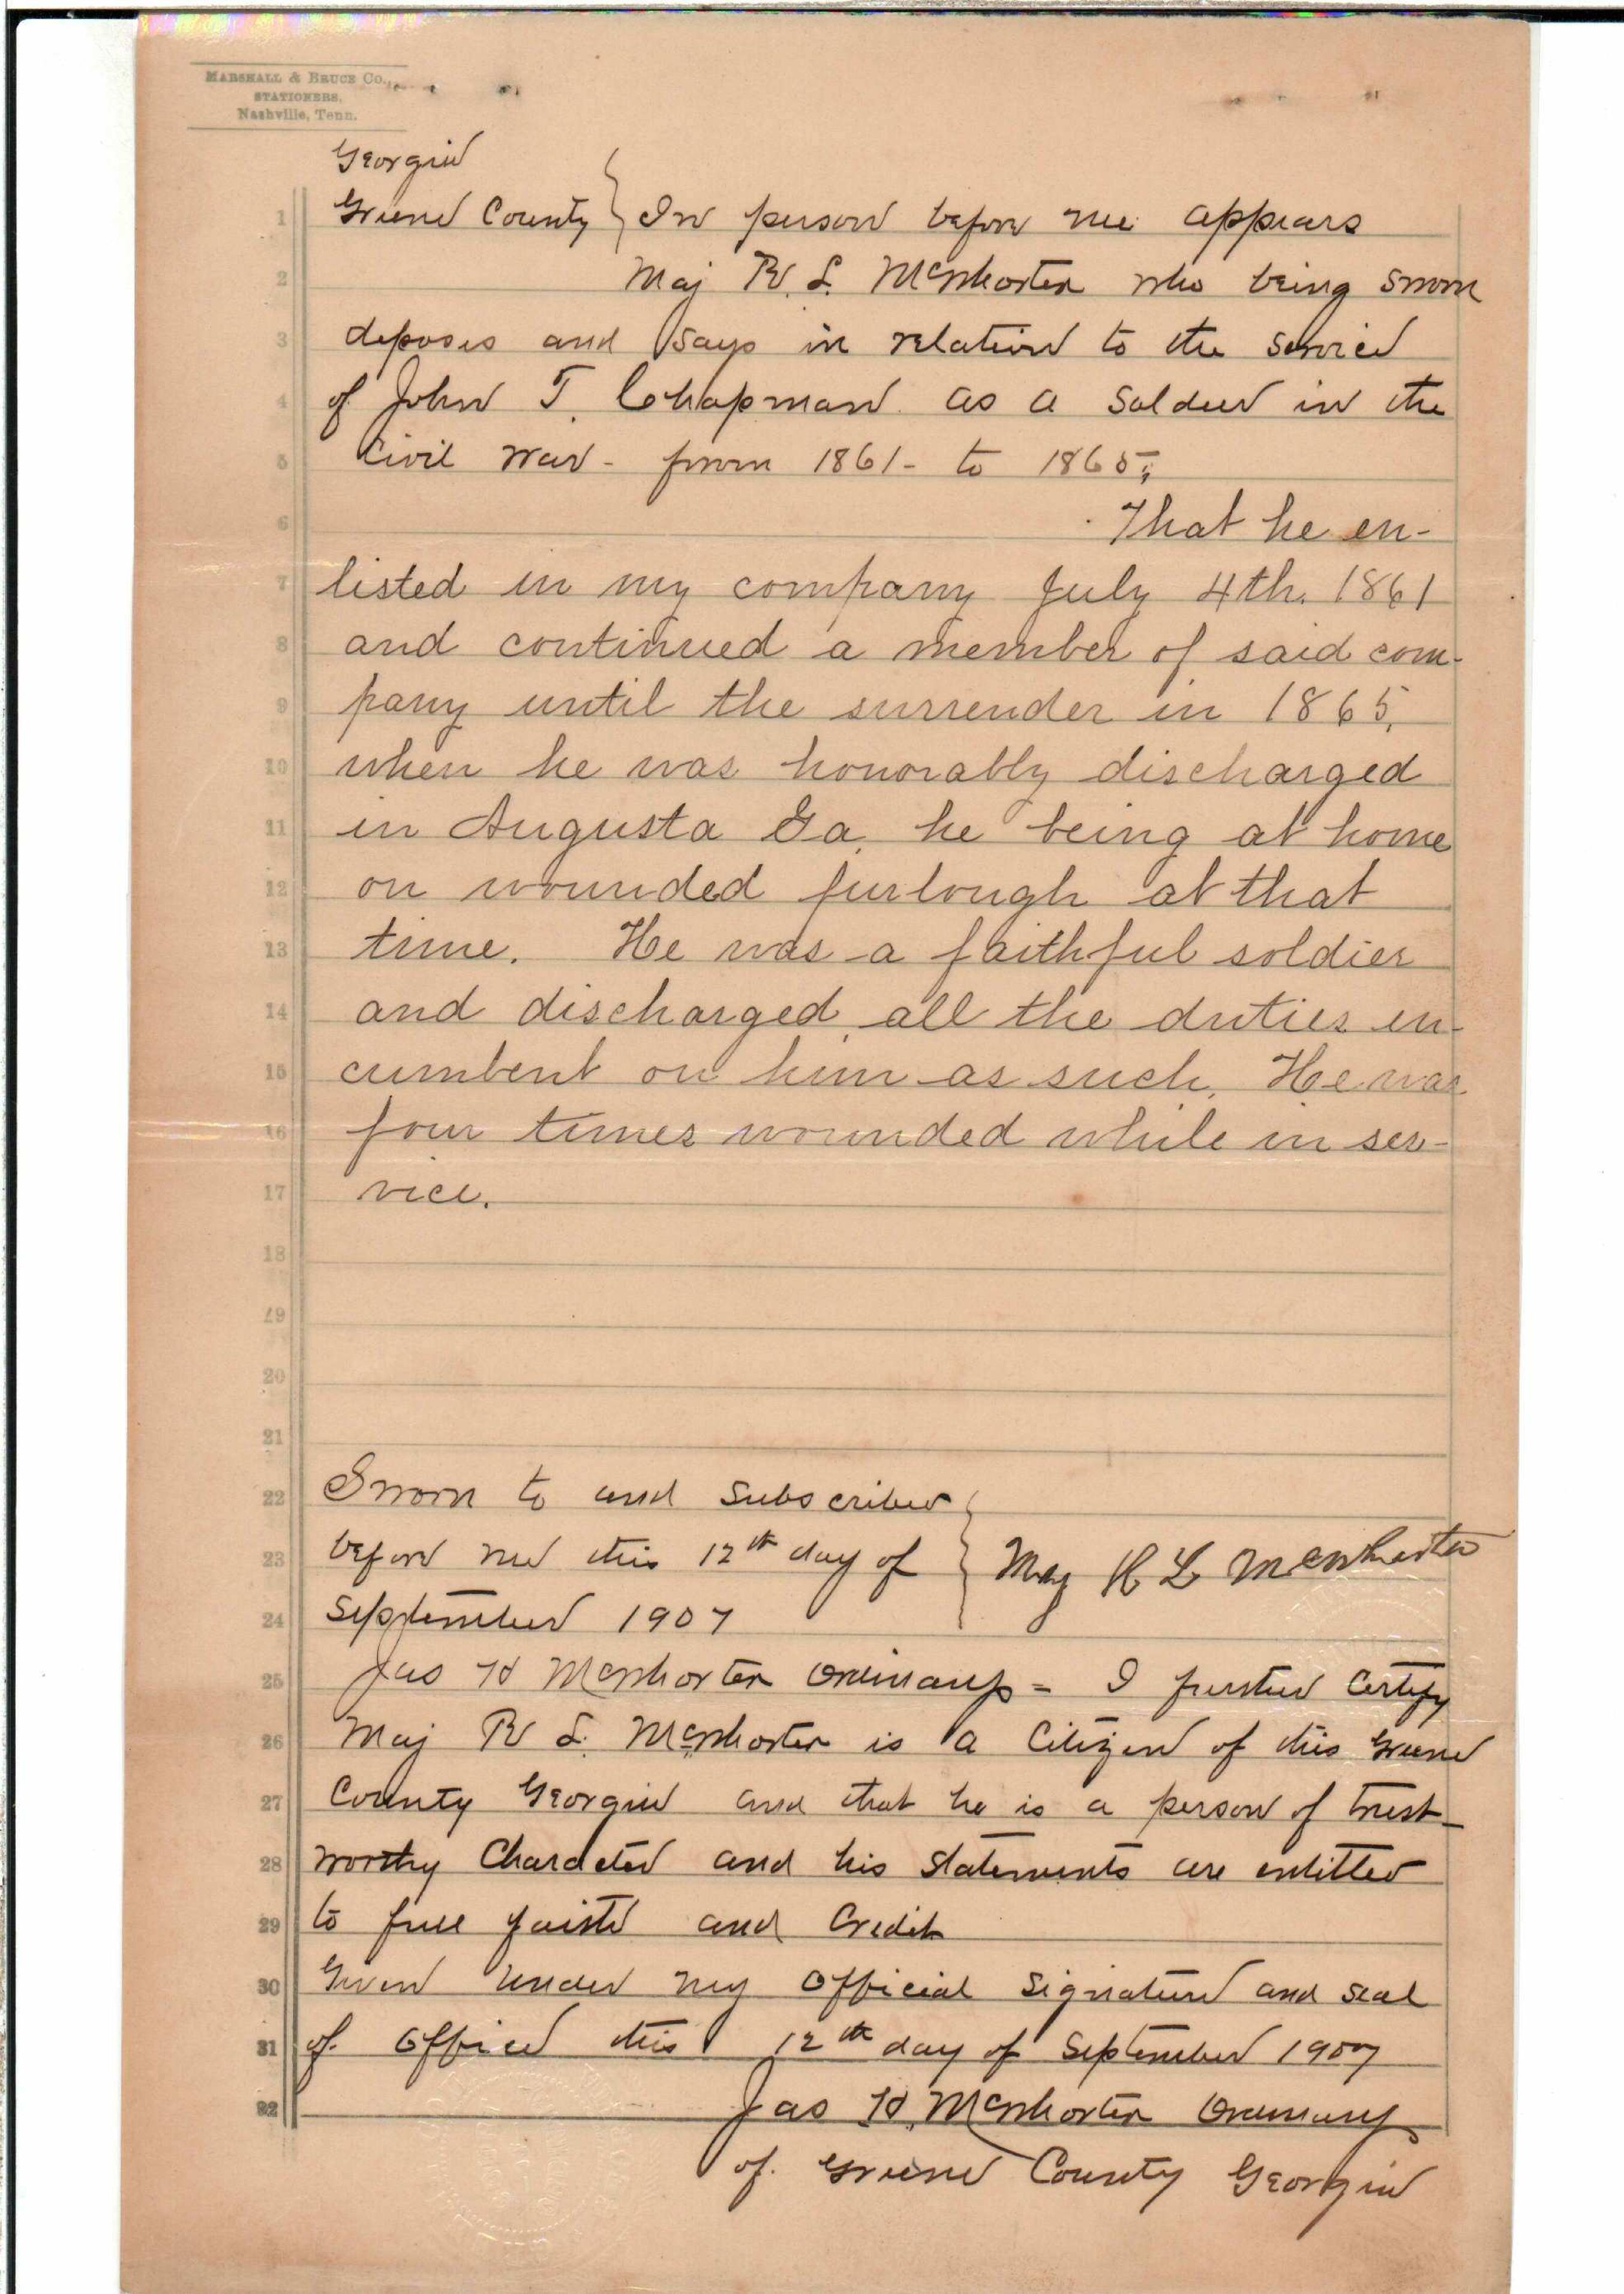 MARSHALL & BRUCE CO.,
STATIONERS,
Nashville, Tenn.
Georgia
1 Greene County } In person before me appears
2 Maj R. L. McWhorter who being sworn
3 deposes and says in relation to the service
4 of John T. Chapman as a Soldier in the
5 Civil War - from 1861 - to 1865;
6 That he en-
7 listed in my company July 4th. 1861
8 and continued a member of said com-
9 pany until the surrender in 1865,
10 when he was honorably discharged
11 in Augusta Ga, he being at home
12 on wounded furlough at that
13 time. He was a faithful soldier
14 and discharged all the duties en-
15 cumbent on him as such. He was
16 four times wounded while in ser-
17 vice.
18
19
20
21
22 Sworn to and subscribed
23 before me this 12th day of } Maj R L McWhorter
24 September 1907
25 Jas H McWhorter Ordinary = I further Certify
26 Maj R L. McWhorter is a Citizen of this Greene
27 County Georgia and that he is a person of trust-
28 worthy Character and his statements are entitled
29 to full faith and Credit
30 Given under my Official Signature and seal
31 of Office this 12th day of September 1907
32 Jas H. McWhorter Ordinary
of Greene County Georgia